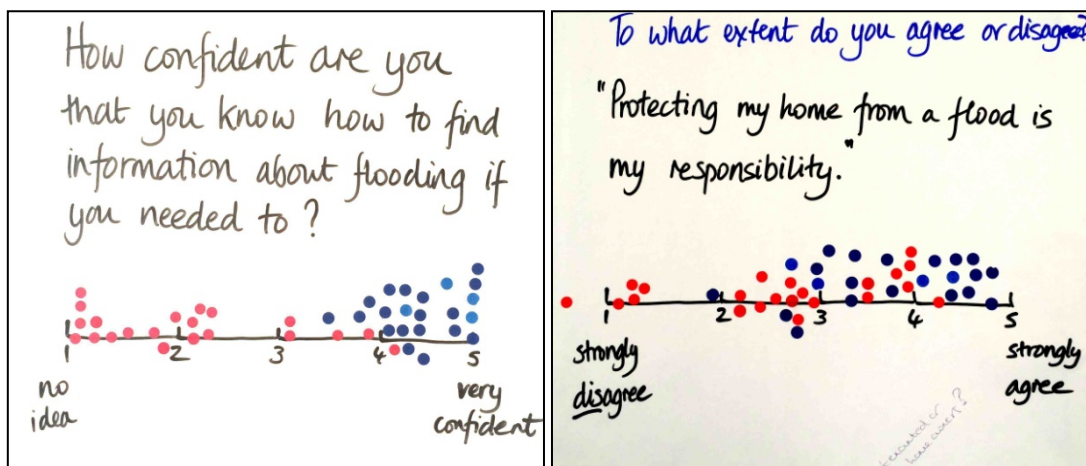 How confident are you
that you know how to find
information about flooding if
you needed to?
1 2 3 4 5
no
idea
very
confident
To what extent do you agree or disagree?
"Protecting my home from a flood is
my responsibility."
1 2 3 4 5
strongly
disagree
strongly
agree